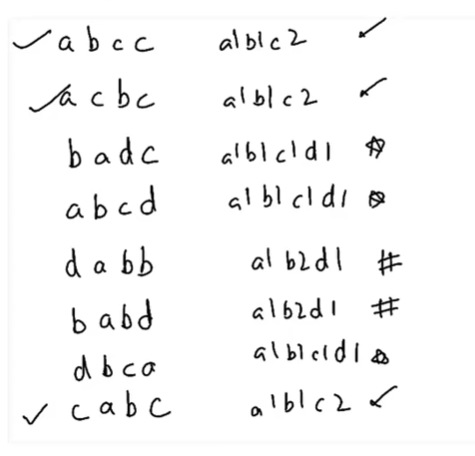 ✓ a b c c a1b1c2 ✓
✓ a c b c a1b1c2 ✓
b a d c a1b1c1d1 ☆
a b c d a1b1c1d1 ☆
d a b b a1b2d1 #
b a b d a1b2d1 #
d b c a a1b1c1d1 ☆
✓ c a b c a1b1c2 ✓